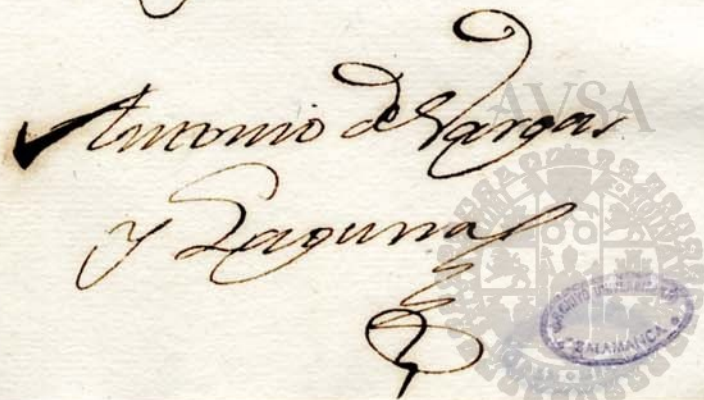 Antonio de Vargas
y Laguna
AVSA
ARCHIVO UNIVERSITARIO
SALAMANCA